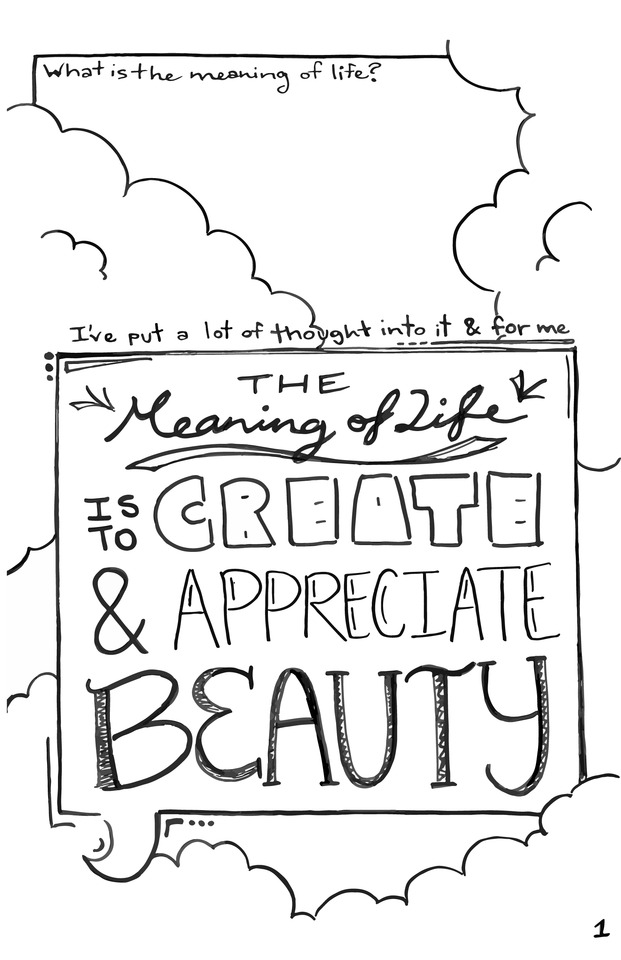 What is the meaning of life?
I've put a lot of thought into it & for me
THE
Meaning of Life
IS TO CREATE
& APPRECIATE
BEAUTY
1